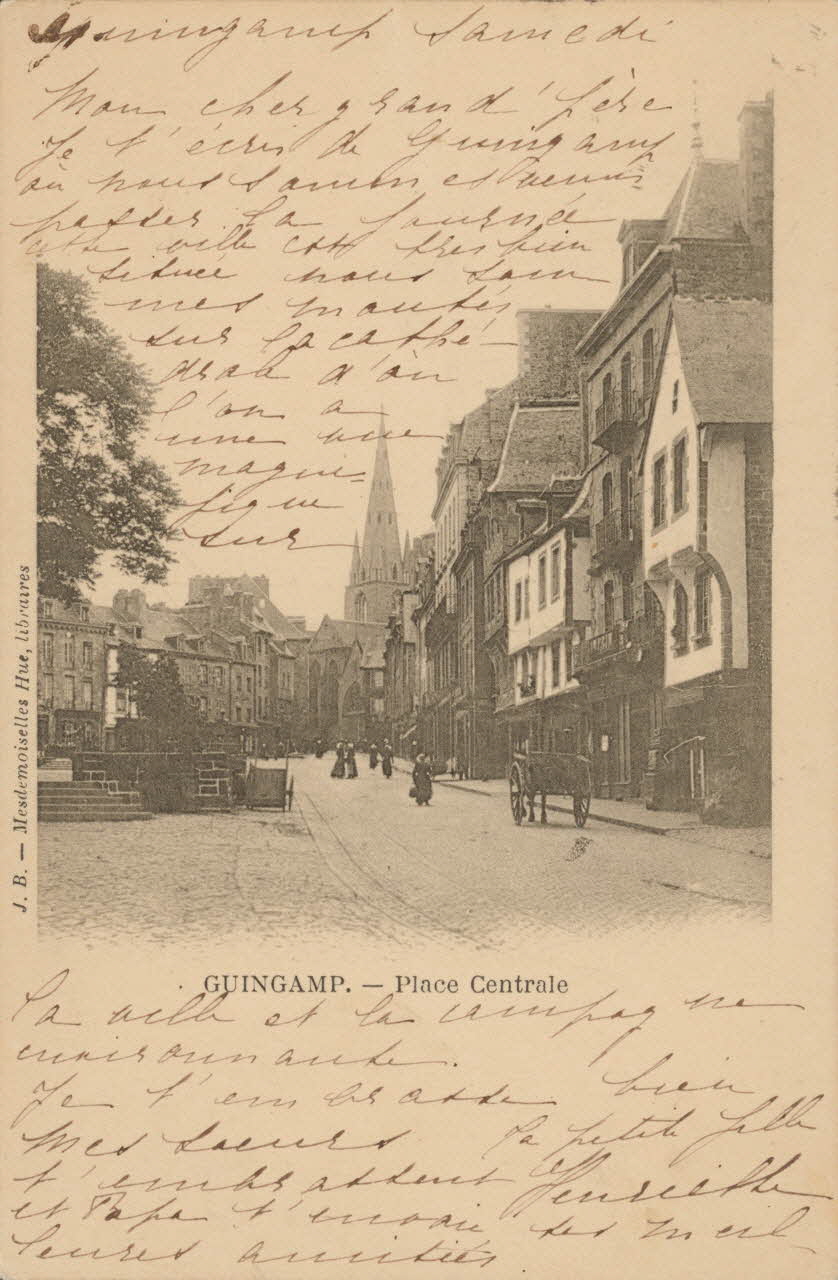 Guingamp Samedi
Mon cher grand'père
Je t'écris de Guingamp
où nous sommes venus
passer la journée
cette ville est très bien
située nous som
mes montés
sur la cathé-
drale d'où
l'on a
une vue
magni-
fique
sur
J. B. — Mesdemoiselles Hue, libraires
GUINGAMP. — Place Centrale
la ville et la campagne
environnante.
Je t'embrasse bien
ta petite fille
Henriette
Mes soeurs
t'embrassent
et Papa t'envoie ses meil
leures amitiés